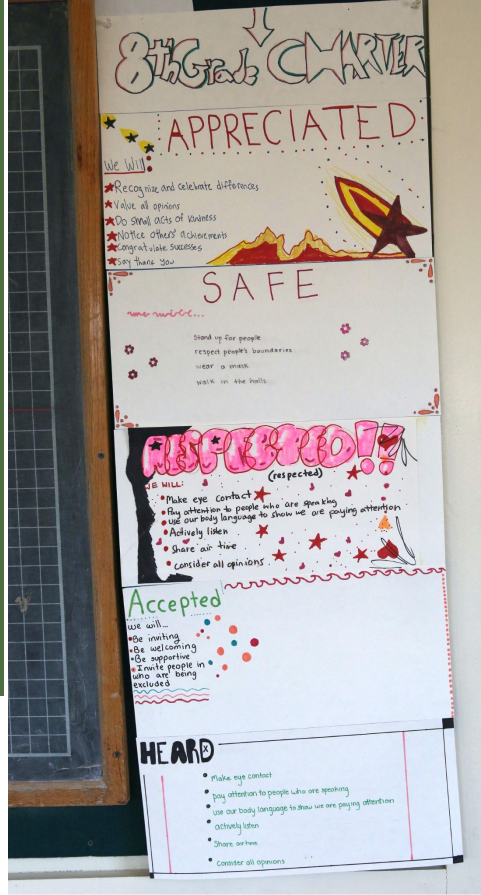 8th Grade CHARTER
APPRECIATED
We Will
Recognize and celebrate differences
Value all opinions
Do small acts of kindness
Notice others' achievements
Congratulate successes
Say thank you
SAFE
we will...
Stand up for people
respect people's boundaries
wear a mask
walk in the halls
RESPECTED!!
(respected)
WE WILL:
Make eye contact
Pay attention to people who are speaking
use our body language to show we are paying attention
Actively listen
Share air time
consider all opinions
Accepted
we will...
Be inviting
Be welcoming
Be supportive
Invite people in
who are being
excluded
HEARD
Make eye contact
pay attention to people who are speaking
use our body language to show we are paying attention
actively listen
Share airtime
Consider all opinions